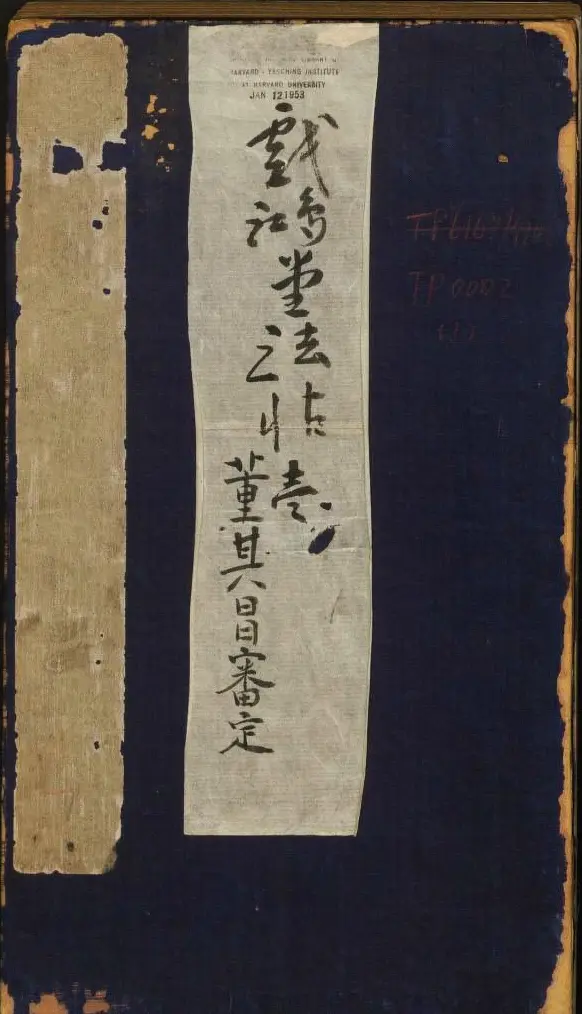 HARVARD-YENCHING INSTITUTE
AT HARVARD UNIVERSITY
JAN 12 1953
戲鴻堂法帖 壹
董其昌審定
TP 0002
(1)